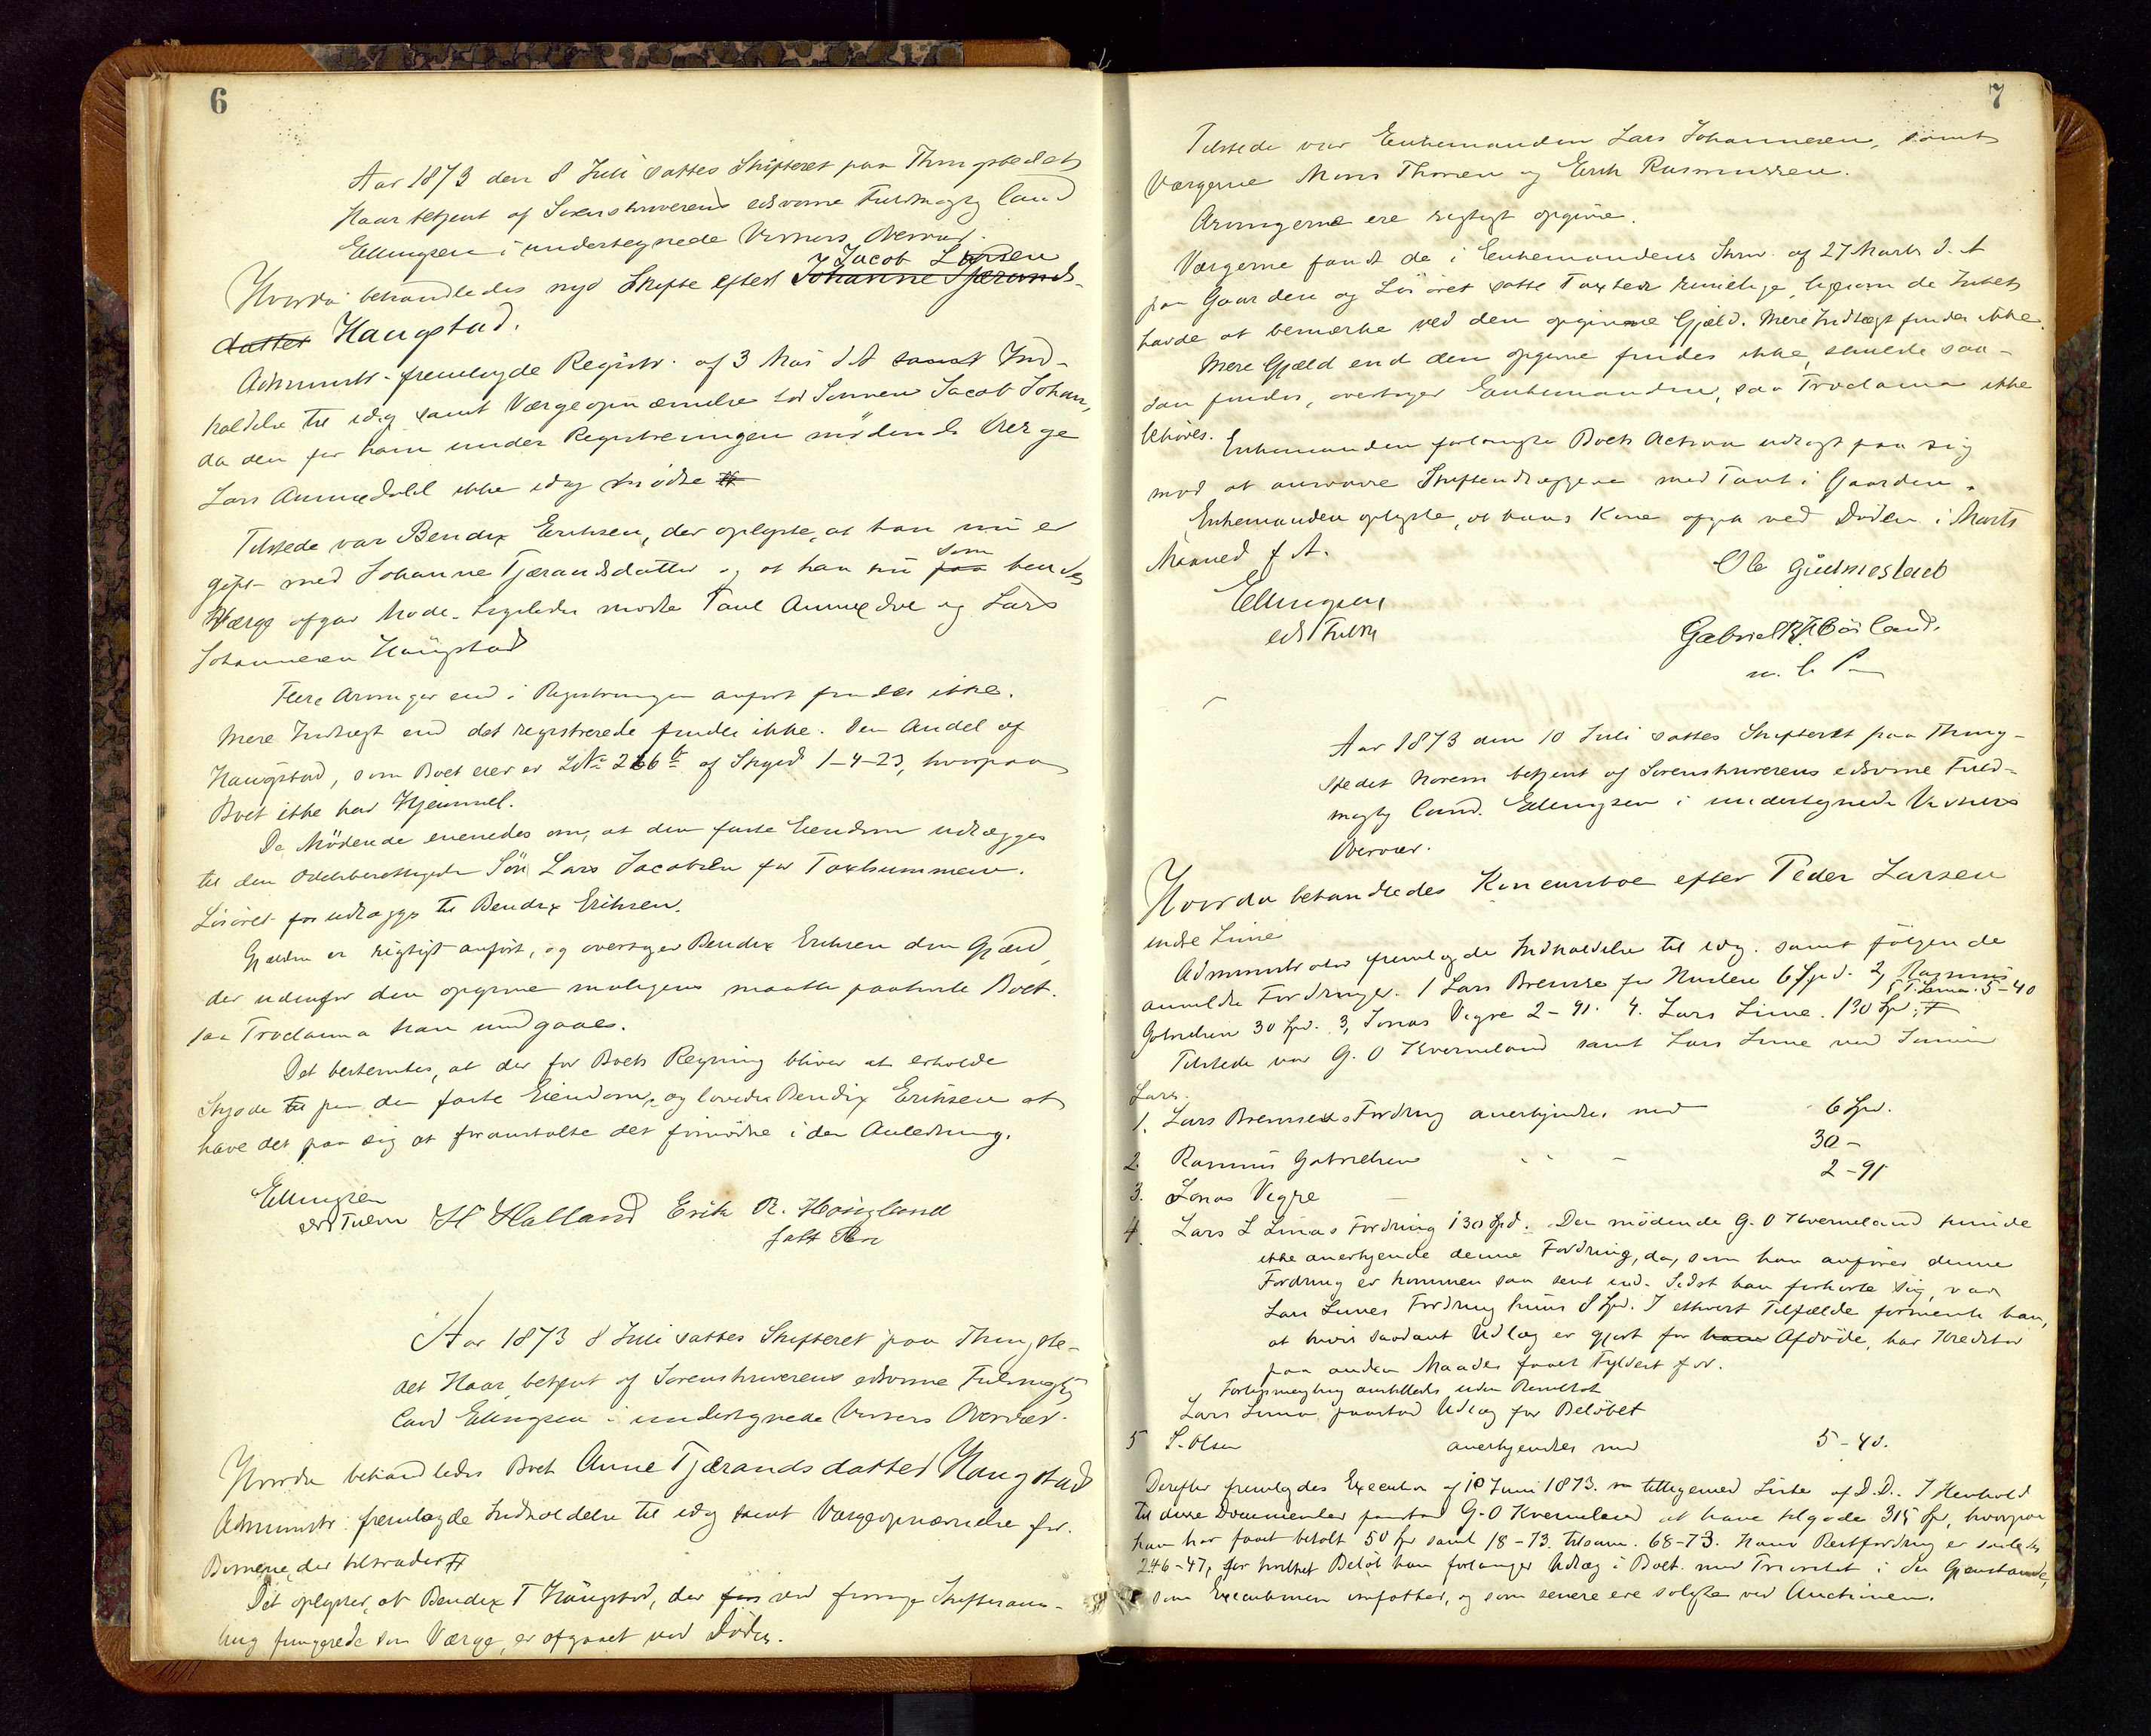 6
Aar 1873 den 8 Juli sattes Skifteret paa Thingstedet
Haar betjent af Sorenskriverens edsvorne Fuldmægtig Cand
Ellingsen i undertegnede Vidners Overvær.
Hvorda behandledes nyt Skifte efter Jacob Larsen Johanne Tjærands-
datter Haugstad.
Administr. fremlagde Registr. af 3 Mai d. A samt Ind-
kaldelse til idag samt Værgeopnævnelse for Sønnen Jacob Johan,
da den for ham under Registreringen mødende Værge
Lars Annuedahl ikke idag mødte
Tilstede var Bendix Eriksen, der oplyste, at han nu er
gift med Johanne Tjærandsdatter og at han nu som paa hendes
Værge afgav Møde. Ligeledes mødte Paul og Lars
Johannesen Haugstad
Flere Arvinger end i Registreringen anført findes ikke.
Mere Indtægt end det registrerede findes ikke. Den Andel af
Haugstad, som Boet eier er LNo 266 b af Skyld 1-4-23, hvorpaa
Boet ikke har Hjemmel.
De Mødende enenedes om, at den faste Eiendom udlægges
til den Odelsberettigede Søn Lars Jacobsen for Taxtsummen.
Løsøret for udlægges til Bendix Eriksen.
Gjælden er rigtigt anført, og overtager Bendix Eriksen den Gjæld,
der udenfor den opgivne muligens maatte paahvile Boet.
saa Proclama kan undgaaes.
Det bestemtes, at der for Boets Regning bliver at erholde
Skjøde til paa den faste Eiendom, og lovede Bendix Eriksen at
have det paa sig at foranstalte det fornødne i den Anledning.
Ellingsen
eds Fuldm H Halland Erik R. Høigland
fast
Aar 1873 8 Juli sattes Skifteret paa Thingste-
det Haar, betjent af Sorenskriverens edsvorne Fuldmægtig
Cand Ellingsen i undertegnede Vidners Overvær.
Hvorda behandledes Boet Anne Tjærandsdatter Haugstad
Administr. fremlagde Indkaldelse til idag samt Værgeopnævnelse for
Børnene, der tiltræder
Det oplystes, at Bendix T Haugstad, der før ved forrige Skiftesam-
ling fungerede som Værge, er afgaaet ved Døden.
7
Tilstede var Enkemanden Lars Johannesen, samt
Værgerne Mons Thorsen og Erik Rasmussen.
Arvingerne ere rigtigt opgivne.
Værgerne fandt de i Enkemandens Skriv. af 27 Marts d. A
paa Gaarden og Løsøret satte Taxter rimelige, ligesom de Intet
havde at bemærke ved den opgivne Gjæld. Mere Indtægt findes ikke.
Mere Gjæld end den opgivne findes ikke, skulde saa-
dan findes, overtager Enkemanden, saa Proclama ikke
behøves.
Enkemanden forlangte Boets Activa udlagt paa sig
mod at ansvare Skifteudlæggene med Pant i Gaarden.
Enkemanden oplyste, at hans Kone afgik ved Døden i Marts
Maaned f A.
Ellingsen
eds Fuldm
Ole Gudmestad
Gabriel Børland.
m. l. P
Aar 1873 den 10 Juli sattes Skifteret paa Thing-
stedet Norem betjent af Sorenskriverens edsvorne Fuld-
mægtig Cand. Ellingsen i undertegnede Vidners
Overvær.
Hvorda behandledes Konkursboe efter Peder Larsen
indre Lime
Administrator fremlagde Indkaldelse til idag. samt følgende
anmeldte Fordringer. 1 Lars Bremse for Husleie 6 Spd. 2, Rasmus
Gabrielsen 30 Spd. 3, Jonas Vigre 2-91. 4. Lars Lime. 130 Spd. 5-40
Tilstede var G. O Kverneland samt Lars Lime ved Sønnen
Lars.
1. Lars Bremses Fordring anerkjendtes med 6 Spd.
2. Rasmus Gabrielsen 30 -
3. Jonas Vigre - 2-91
4. Lars L Limes Fordring 130 Spd. Den mødende G. O Kverneland kunde
ikke anerkjende denne Fordring, da, som han anfører denne
Fordring er kommen saa sent ind. Sidst han forhørte sig, var
Lars Limes Fordring kuns 8 Spd. I ethvert Tilfælde formente han,
at hvis saadant Udlæg er gjort for ham Afdøde, har Kreditor
paa anden Maade faaet Fyldest for.
Forligsmægling anstilledes uden Resultat
Lars Lime paastod Udlæg for Beløbet
5 S. Olsen anerkjendtes med 5-40.
Derefter fremlagdes Execution af 10 Juni 1873. tilligemed Liste af D.D. I Henhold
til disse Documenter paastod G. O Kverneland at have tilgode 315 Spd, hvorpaa
han har faaet betalt 50 Spd samt 18-73. tilsam. 68-73. Hans Restfordring er saaledes
246-47, for hvilket Beløb han forlanger Udlæg i Boet med Prioritet i de Gjenstande,
som Executionen omfatter, og som senere ere solgte ved Auctionen.